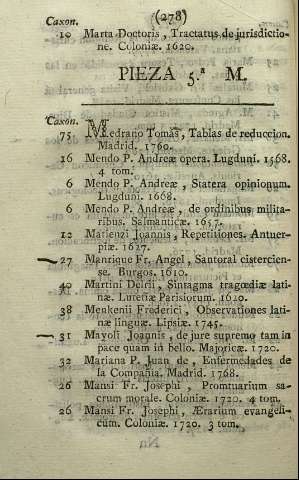 Caxon. (278)
10 Marta Doctoris, Tractatus de jurisdictio-
ne. Coloniæ. 1620.
PIEZA 5.ª M.
Caxon.
75 Medrano Tomás, Tablas de reduccion.
Madrid. 1760.
16 Mendo P. Andreæ opera. Lugduni. 1568.
4 tom.
6 Mendo P. Andreæ, Statera opinionum.
Lugduni. 1668.
6 Mendo P. Andreæ, de ordinibus milita-
ribus. Salmanticæ. 1657.
12 Matienzi Joannis, Repetitiones. Antuer-
piæ. 1627.
27 Manrique Fr. Angel, Santoral cistercien-
se. Burgos. 1610.
40 Martini Delrii, Sintagma tragœdiæ lati-
næ. Lutetiæ Parisiorum. 1620.
38 Menkenii Frederici, Observationes lati-
næ linguæ. Lipsiæ. 1745.
31 Mayoli Joannis, de jure supremo tam in
pace quam in bello. Majoricæ. 1720.
32 Mariana P. Juan de, Enfermedades de
la Compañia. Madrid. 1768.
26 Mansi Fr. Josephi, Promtuarium sa-
crum morale. Coloniæ. 1720. 4 tom.
26 Mansi Fr. Josephi, Ærarium evangeli-
cum. Coloniæ. 1720. 3 tom.